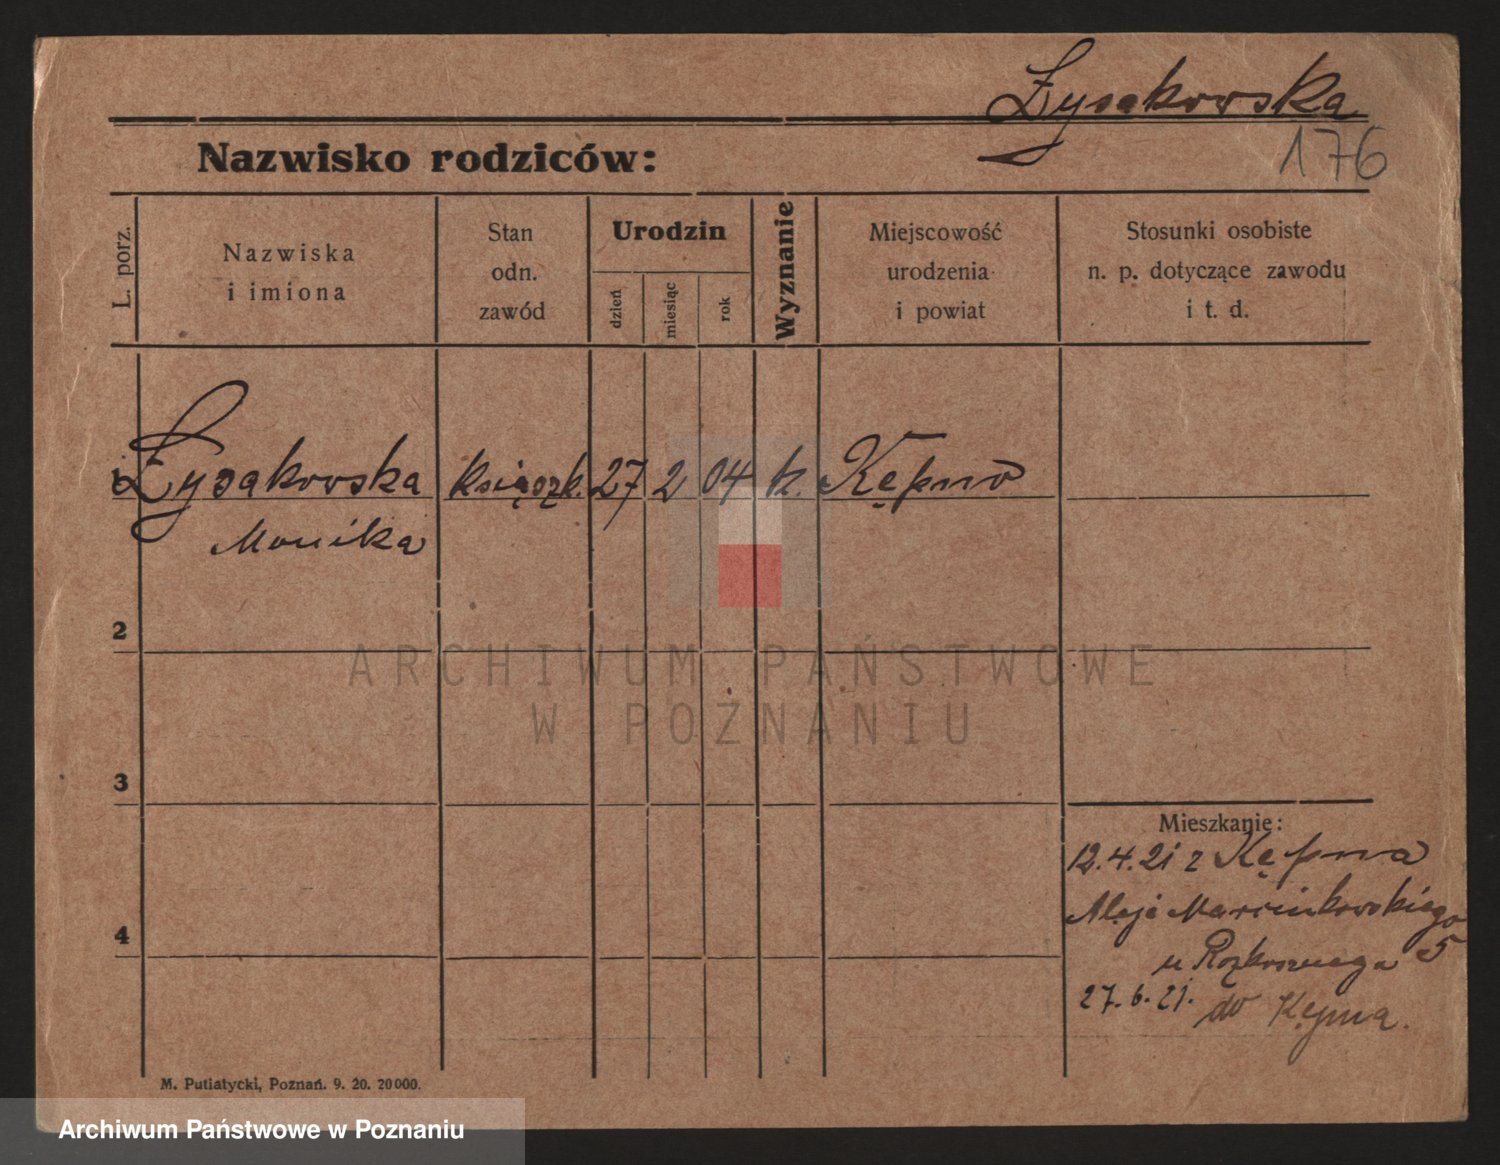 Łysakowska
176
Nazwisko rodziców:
L. porz.
Nazwiska
i imiona
Stan
odn.
zawód
Urodzin
dzień
miesiąc
rok
Wyznanie
Miejscowość
urodzenia
i powiat
Stosunki osobiste
n. p. dotyczące zawodu
i t. d.
Łysakowska książk. 27 2 04 k. Kępno
Monika
2
ARCHIWUM PAŃSTWOWE
W POZNANIU
3
Mieszkanie:
12.4.21 z Kępna
Aleje Marcinkowskiego
5
u
27.6.21. do Kępna.
4
M. Putiatycki, Poznań. 9. 20. 20000.
Archiwum Państwowe w Poznaniu